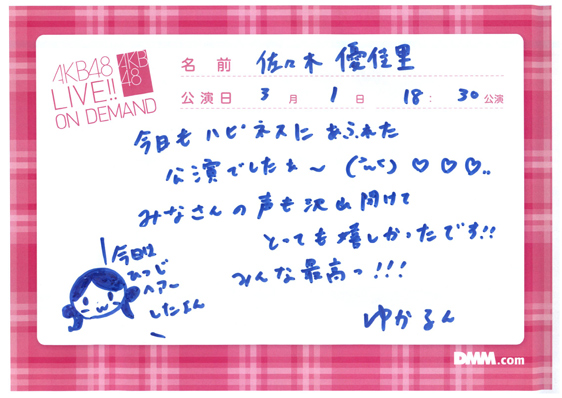 AKB48
LIVE!!
ON DEMAND
AKB
48
名前 佐々木 優佳里
公演日 3月 1日 18:30公演
今日も ハピネスに あふれた
公演でしたぁ〜 (˘ω˘) ♡♡♡..
みなさんの声も沢山聞けて
とっても嬉しかったです!!
みんな最高っ!!!
ゆかるん
今日は
ひつじ
ヘアー
したよん
DMM.com